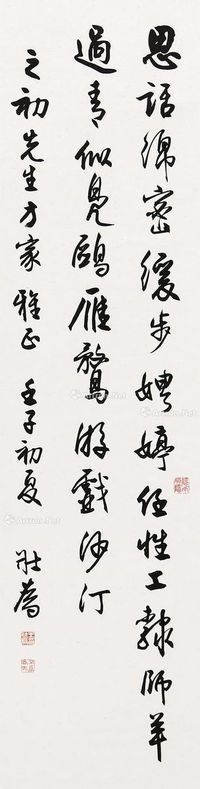 思話綿密緩步娉婷任性工隸師羊
過青似覓鷗雁驚游戲沙汀
之初先生方家雅正 壬子初夏 莊嚴